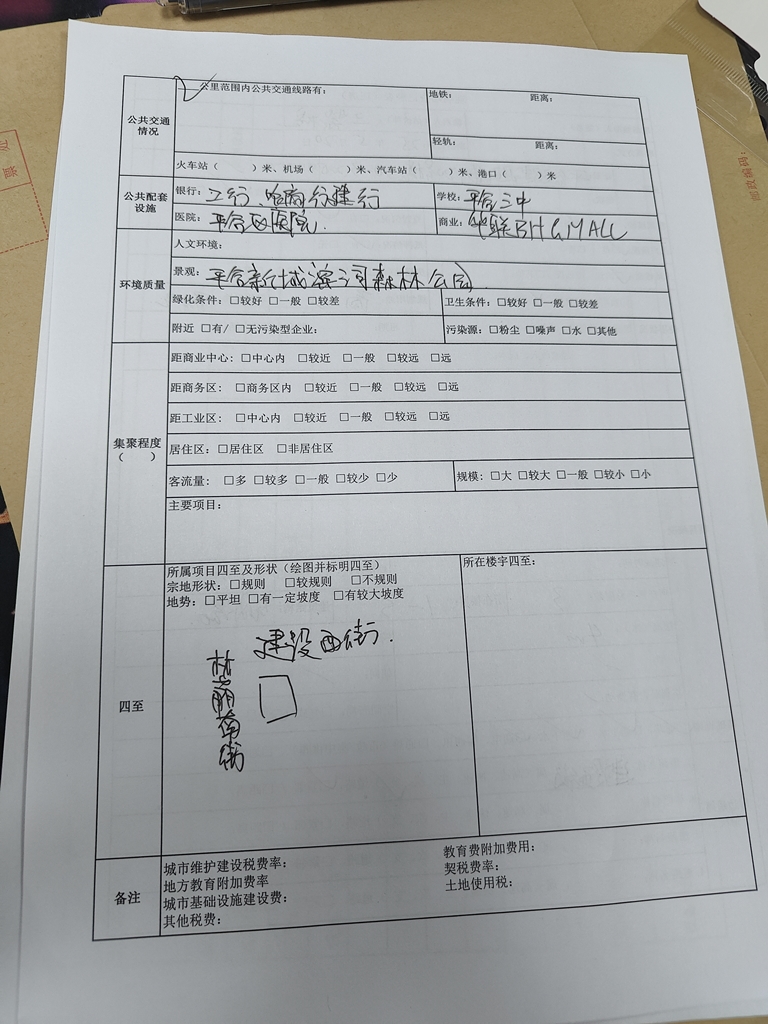 公共交通情况
公里范围内公共交通线路有：
地铁： 距离：
轻轨： 距离：
火车站（ ）米、机场（ ）米、汽车站（ ）米、港口（ ）米
公共配套设施
银行：工行、哈商行建行
学校：平房三中
医院：平房区医院.
商业：华联BHGMALL
环境质量
人文环境：
景观：平房新城滨河森林公园.
绿化条件：□较好 □一般 □较差
卫生条件：□较好 □一般 □较差
附近 □有/ □无污染型企业：
污染源：□粉尘 □噪声 □水 □其他
集聚程度（ ）
距商业中心：□中心内 □较近 □一般 □较远 □远
距商务区：□商务区内 □较近 □一般 □较远 □远
距工业区：□中心内 □较近 □一般 □较远 □远
居住区：□居住区 □非居住区
客流量：□多 □较多 □一般 □较少 □少
规模：□大 □较大 □一般 □较小 □小
主要项目：
四至
所属项目四至及形状（绘图并标明四至）
宗地形状：□规则 □较规则 □不规则
地势：□平坦 □有一定坡度 □有较大坡度
所在楼宇四至：
建设西街.
南街
备注
城市维护建设税费率：
教育费附加费用：
地方教育附加费率
契税费率：
城市基础设施建设费：
土地使用税：
其他税费：
邮政编码：